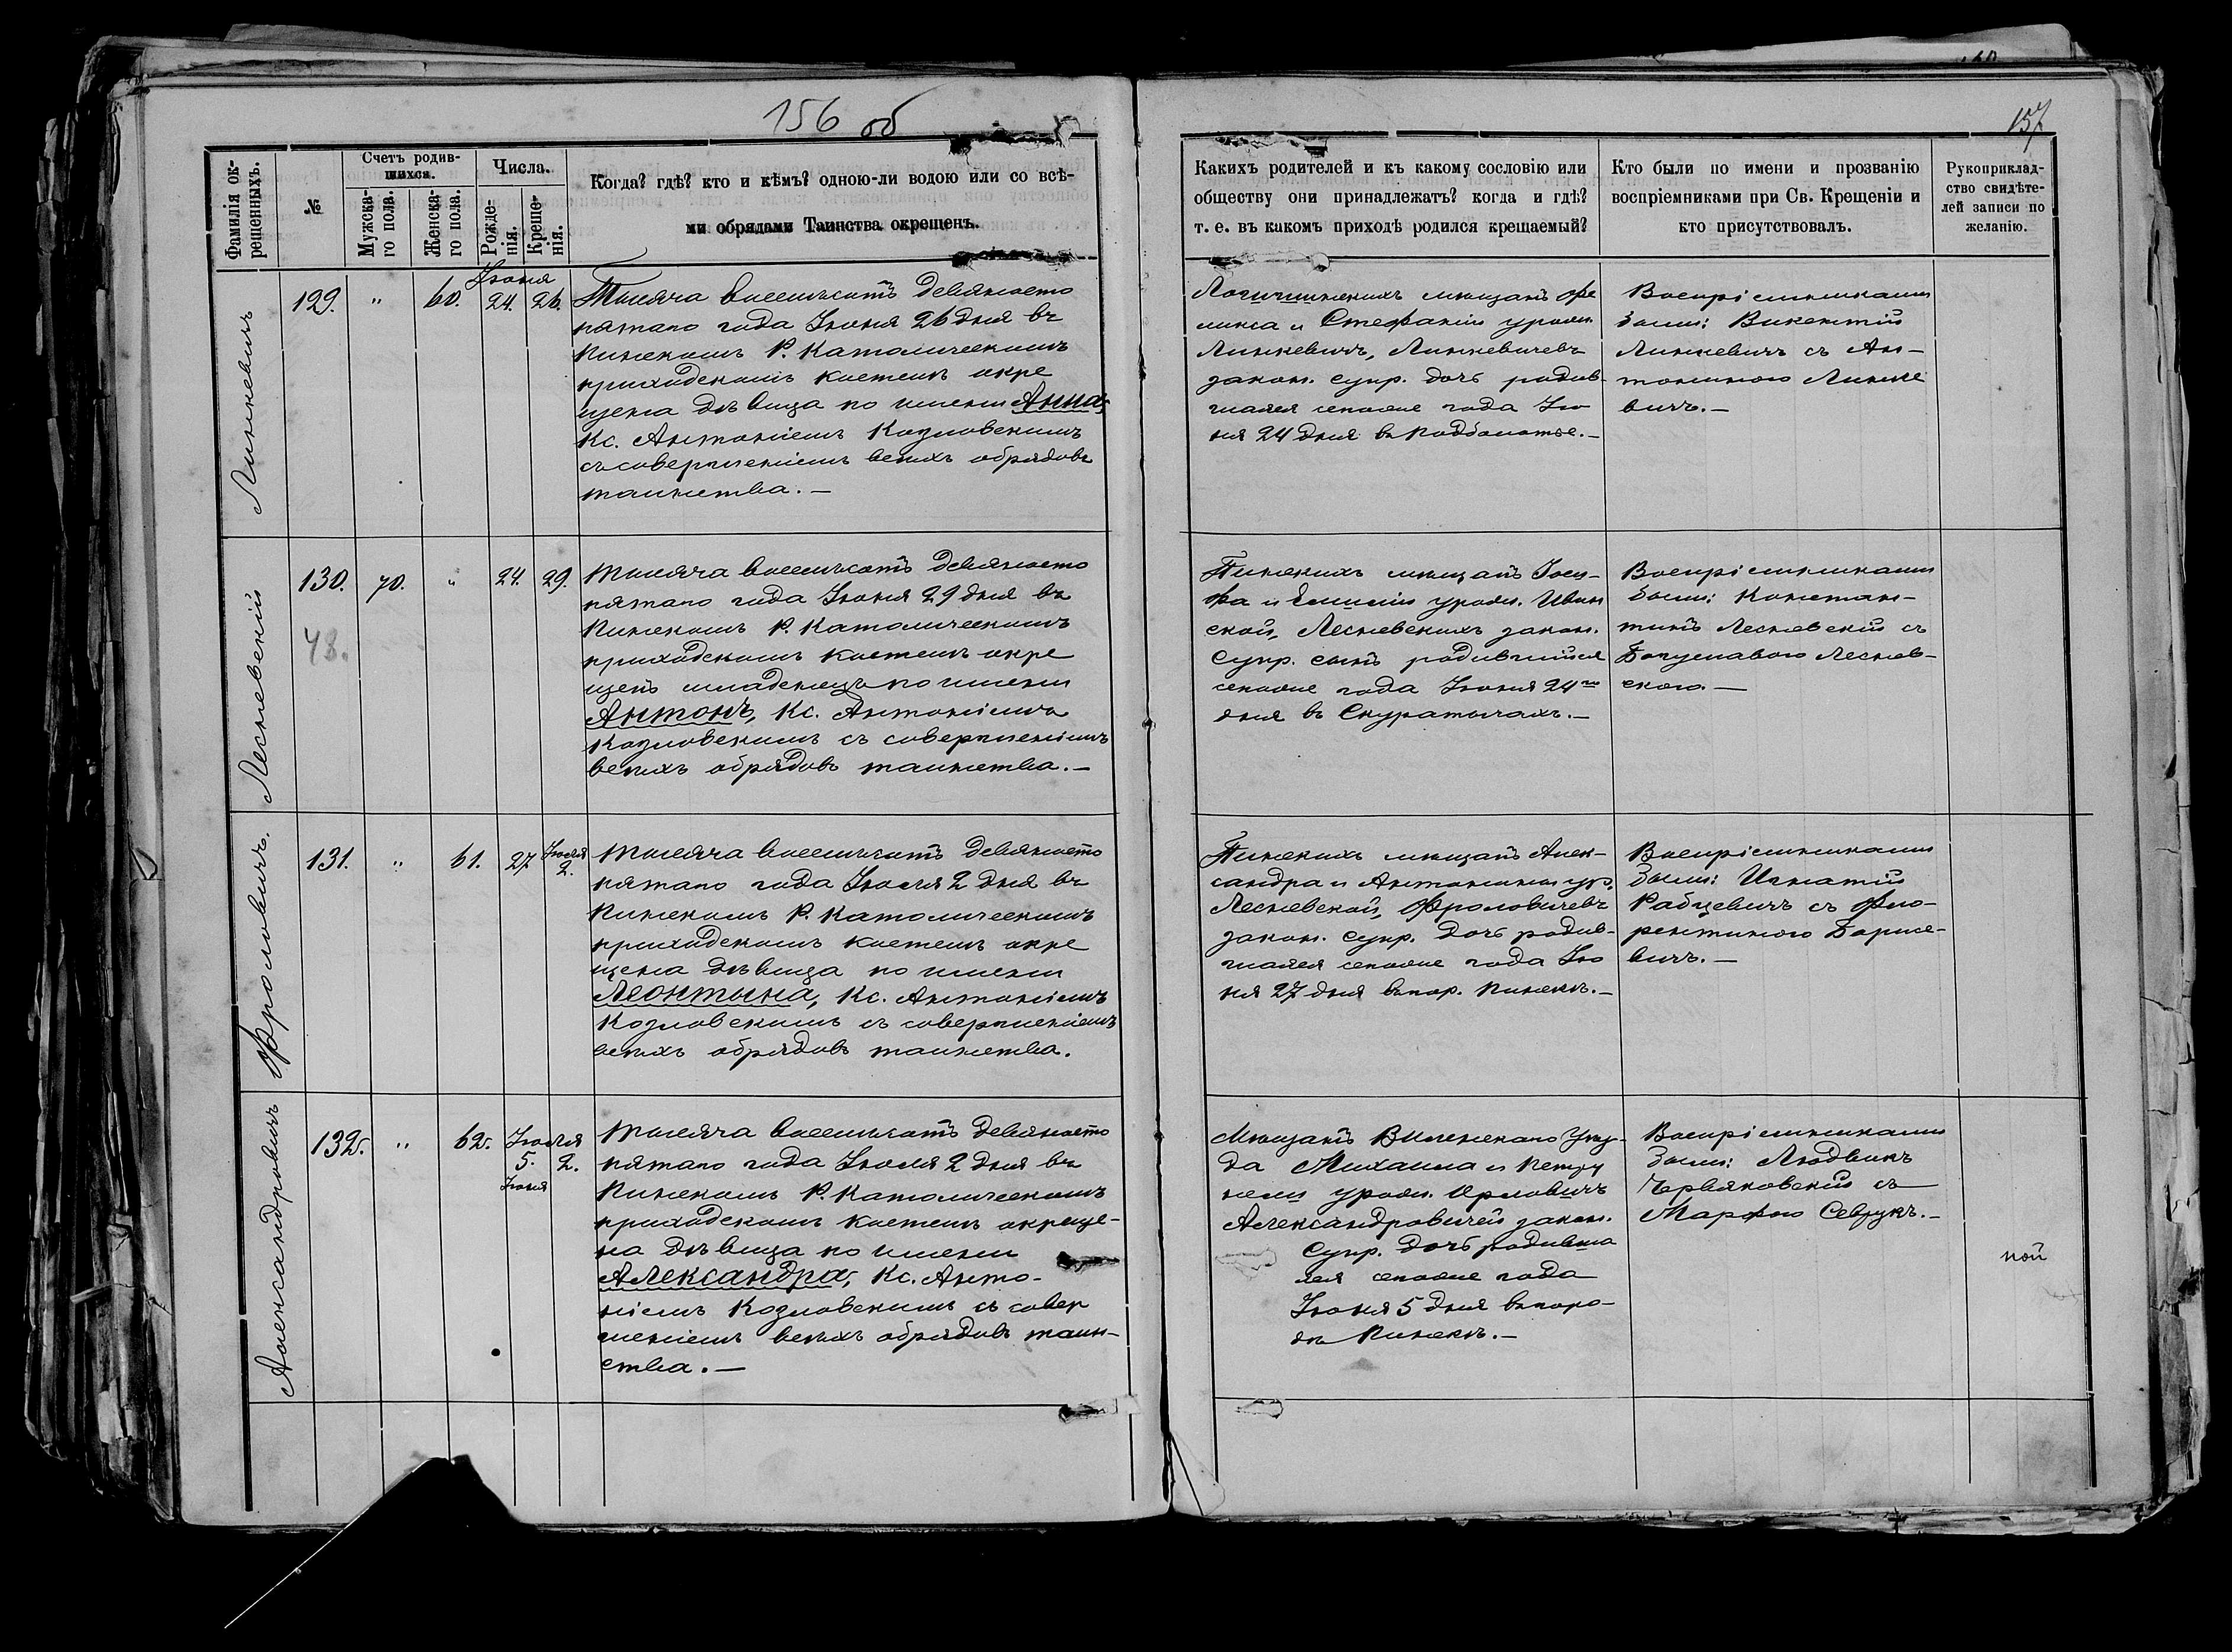 156 об
157
Фамилія ок-
рещенныхъ.
№
Счетъ родив-
шихся.
Мужска-
го пола.
Женска-
го пола.
Числа.
Рожде-
нія.
Креще-
нія.
Когда? гдѣ? кто и кѣмъ? одною-ли водою или со всѣ-
ми обрядами Таинства окрещенъ.
Каких​ъ родителей и къ какому сословію или
обществу они принадлежатъ? когда и гдѣ?
т. е. въ какомъ приходѣ родился крещаемый?
Кто были по имени и прозванію
воспріемниками при Св. Крещеніи и
кто присутствовалъ.
Рукоприклад-
ство свидѣте-
лей записи по
желанію.
Линкевичъ
129.
"
60.
Іюня
24. 26.
Тысяча восемьсотъ девяносто
пятаго года Іюня 26 дня въ
Пинскомъ Р. Католическомъ
приходскомъ костелѣ окре
щена дѣвица по имени Анна,
Кс. Антоніемъ Козловскимъ
съ совершеніемъ всѣхъ обрядовъ
таинства. —
Логишинскихъ мѣщанъ Фе
ликса и Стефаніи урожд.
Линкевичъ, Линкевичевъ
закон. супр. дочь родив-
шаяся сего же года Ію
ня 24 дня въ Подболотье. —
Воспріемниками
были: Викентій
Линкевичъ съ Ан-
тониною Линке
вичъ. —
Лесневскій
130.
48.
70.
"
24. 29.
Тысяча восемьсотъ девяносто
пятаго года Іюня 29 дня въ
Пинскомъ Р. Католическомъ
приходскомъ костелѣ окре
щенъ младенецъ по имени
Антонъ, Кс. Антоніемъ
Козловскимъ съ совершеніемъ
всѣхъ обрядовъ таинства. —
Пинскихъ мѣщанъ Іоси-
фа и Емиліи урожд. Ивин
ской, Лесневскихъ закон.
супр. сынъ родившійся
сего же года Іюня 24го
дня въ Скуратычахъ. —
Воспріемниками
были: Констан-
тинъ Лесневскій съ
Богуславою Леснев-
скою. —
Фроловичъ.
131.
"
61.
27
Іюля
2.
Тысяча восемьсотъ девяносто
пятаго года Іюля 2 дня въ
Пинскомъ Р. Католическомъ
приходскомъ костелѣ окре
щена дѣвица по имени
Леонтына, Кс. Антоніемъ
Козловскимъ съ совершеніемъ
всѣхъ обрядовъ таинства.
Пинскихъ мѣщанъ Алек-
сандра и Антонины ур.
Лесневской, Фроловичевъ
закон. супр. дочь родив-
шаяся сего же года Ію
ня 27 дня въ гор. Пинскѣ. —
Воспріемниками
были: Игнатій
Рабцевичъ съ Фло-
рентиною Борисе-
вичъ. —
Александровичъ
132.
"
62.
Іюля
5. 2.
Іюня
Тысяча восемьсотъ девяносто
пятаго года Іюля 2 дня въ
Пинскомъ Р. Католическомъ
приходскомъ костелѣ окреще-
на дѣвица по имени
Александра, Кс. Анто-
ніемъ Козловскимъ съ совер
шеніемъ всѣхъ обрядовъ таин-
ства. —
Мѣщанъ Виленскаго Уѣз-
да Михаила и Петру
нели урожд. Орловичъ
Александровичей закон.
супр. дочь родивша
яся сего же года
Іюня 5 дня въ горо-
дѣ Пинскѣ. —
Воспріемниками
были: Людвикъ
Червяковскій съ
Марфою Севрукъ. —
ной